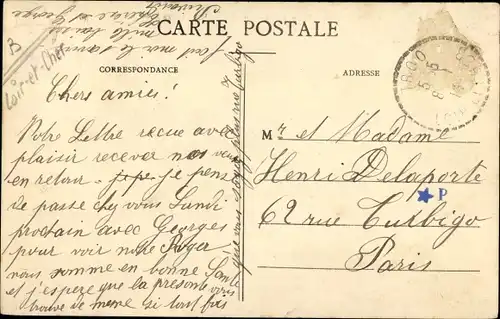 CARTE POSTALE
CORRESPONDANCE
ADRESSE
B
Loir-et-Cher
Chers amies!
Votre Lettre recue avec
plaisir recever nos veux
en retour - je pens
de passe chez vous Lundi
prochain avec Georges
pour voir notre Roger
nous somme en bonne Sante
et j'espeze que la presonte vous
trouve de meme si tout fois
que vous loger plus rue Turbigo
mille baiser
Mr et Madame
Henri Delaporte
62 rue Turbigo
Paris
P